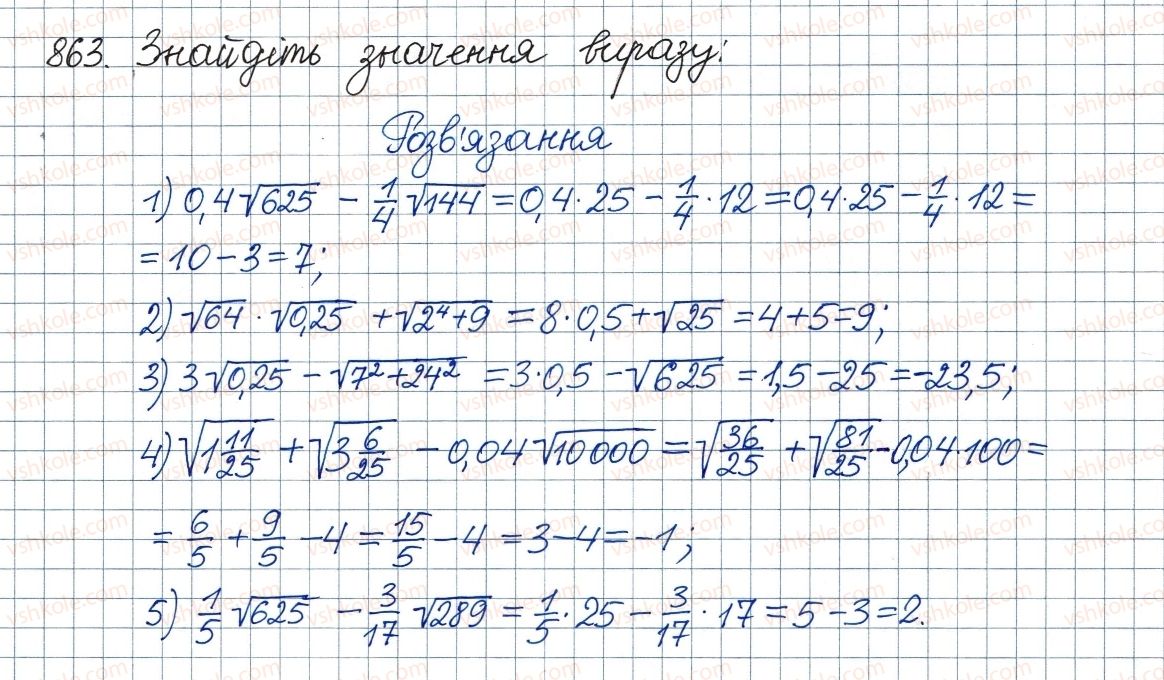 863. Знайдіть значення виразу:
Розв'язання
1) 0,4√625 - 1/4 √144 = 0,4·25 - 1/4·12 = 0,4·25 - 1/4·12 =
= 10 - 3 = 7;
2) √64·√0,25 + √(2⁴+9) = 8·0,5 + √25 = 4+5=9;
3) 3√0,25 - √(7²+24²) = 3·0,5 - √625 = 1,5 - 25 = -23,5;
4) √(1 11/25) + √(3 6/25) - 0,04√10000 = √(36/25) + √(81/25) - 0,04·100 =
= 6/5 + 9/5 - 4 = 15/5 - 4 = 3-4 = -1;
5) 1/5 √625 - 3/17 √289 = 1/5·25 - 3/17·17 = 5-3=2.